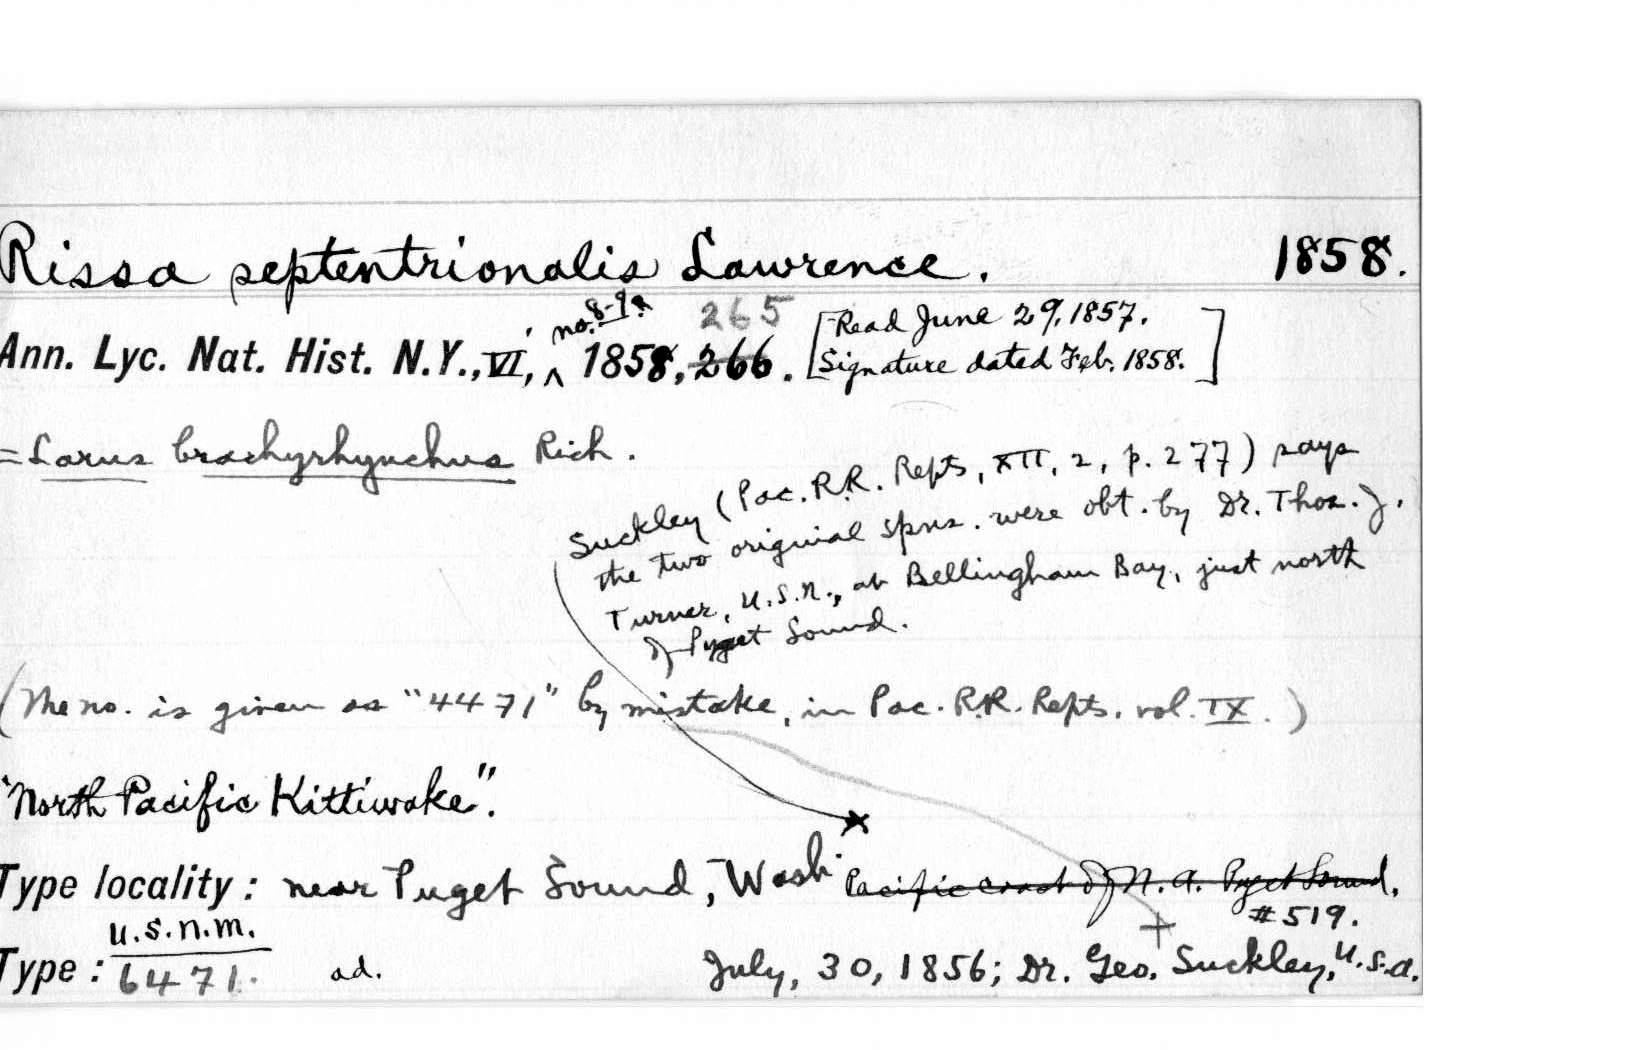 Rissa septentrionalis Lawrence. 1858.
Ann. Lyc. Nat. Hist. N.Y., VI, ^ no. 8-9? 1858, 266. 265 [Read June 29, 1857.
Signature dated Feb. 1858.]
= Larus brachyrhynchus Rich.
Suckley (Pac. R.R. Repts, XII, 2, p. 277) says
the two original spns. were obt. by Dr. Thos. J.
Turner, U.S.N., at Bellingham Bay, just north
of Puget Sound.
(The no. is given as "4471" by mistake, in Pac. R.R. Repts, vol. IX.)
"North Pacific Kittiwake".
Type locality: near Puget Sound, Wash. Pacific coast of N.A. Puget Sound,
#519.
Type: U.S.N.M. 6471. ad. July, 30, 1856; Dr. Geo. Suckley, U.S.A.